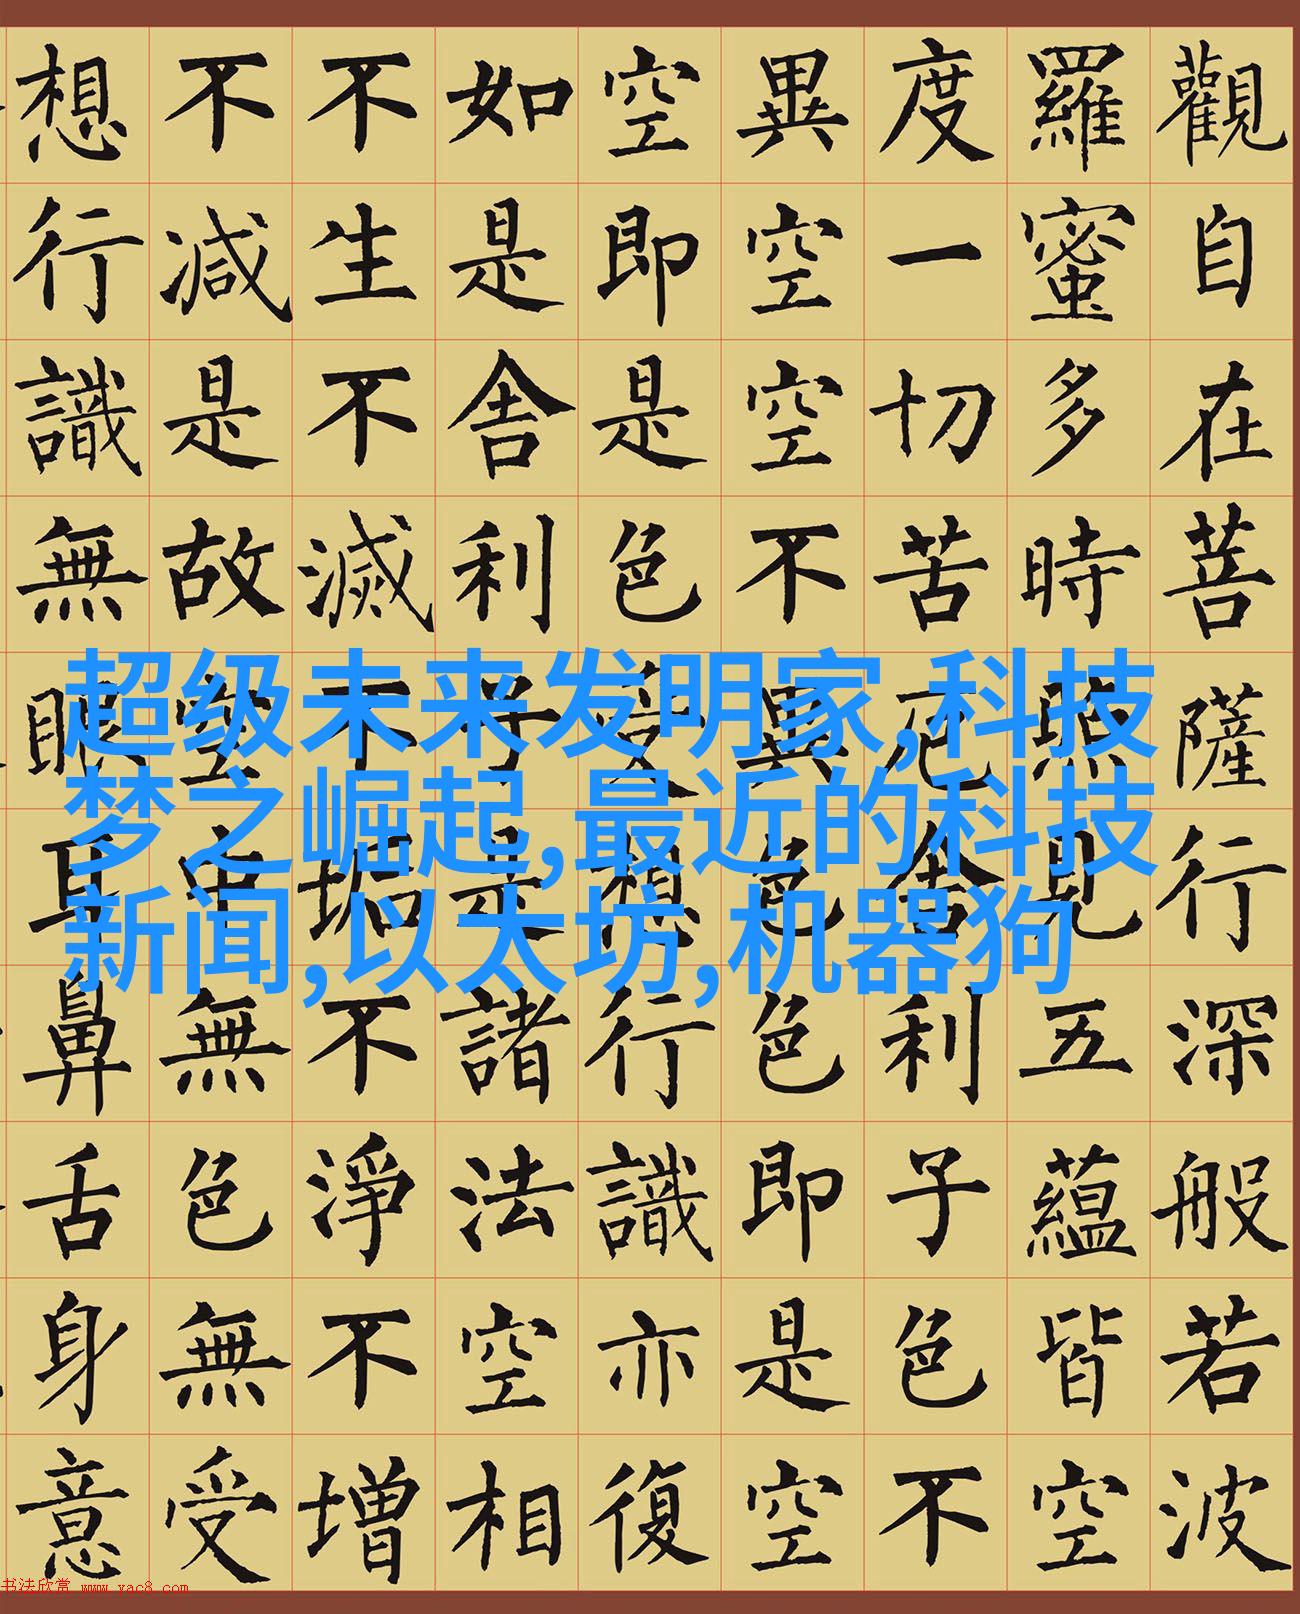 觀自在菩薩行深般若波
羅蜜多時照見五蘊皆空
度一切苦厄舍利子色不
異空空不異色色即是空
空即是色受想行識亦復
如是舍利子是諸法空相
不生不滅不垢不淨不增
不減是故空中無色無受
想行識無眼耳鼻舌身意
超级未来发明家,科技
梦之崛起,最近的科技
新闻,以太坊,机器狗
书法欣赏 www.yac8.com